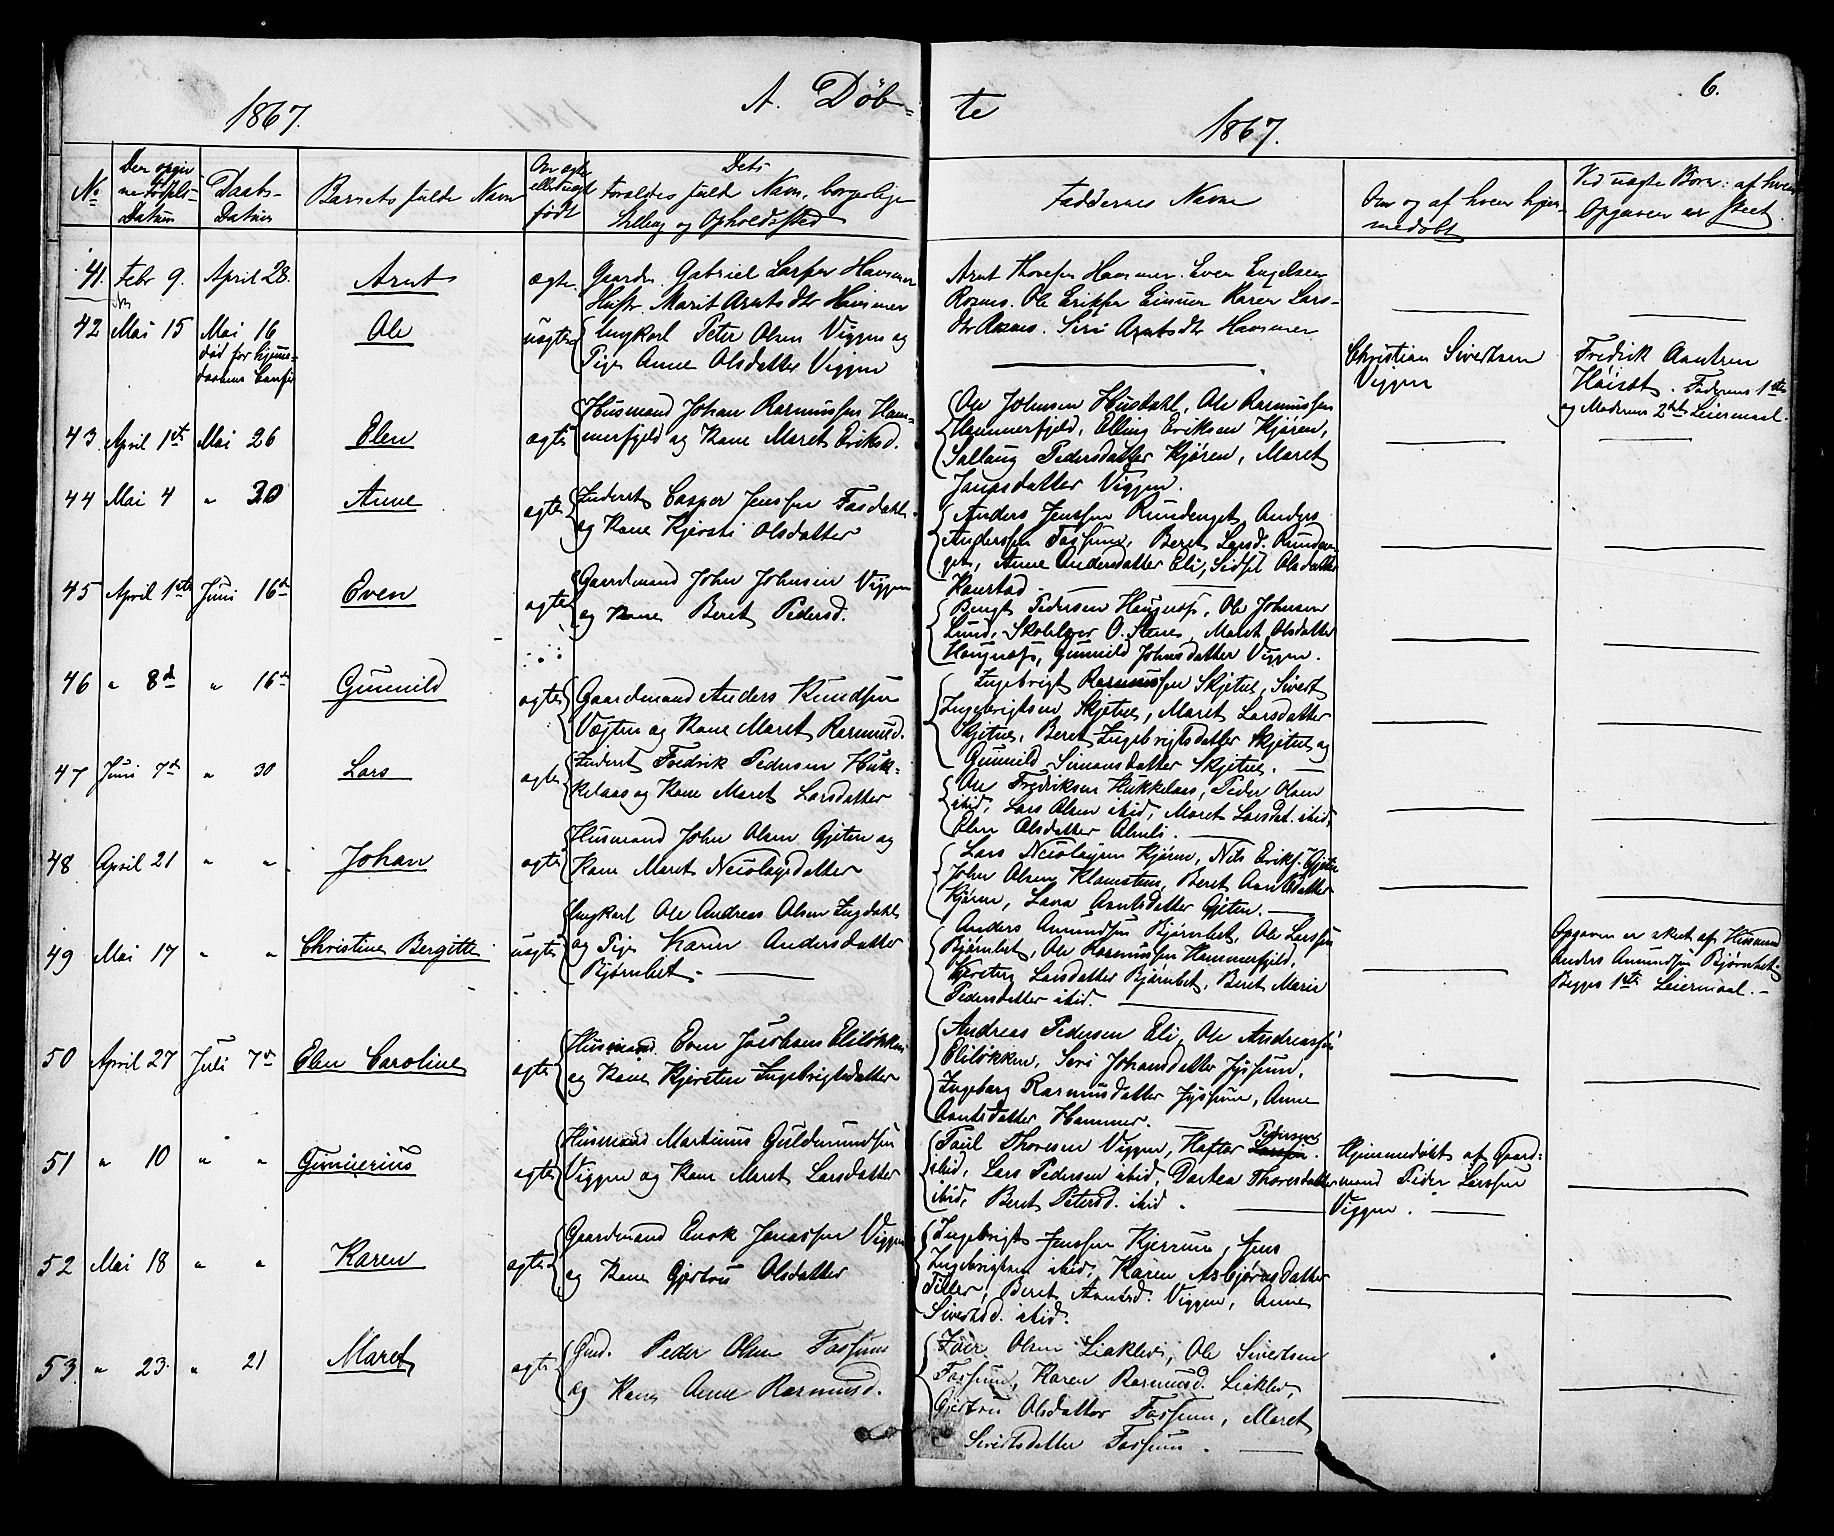 1867. A. Døb-
te 1867. 6.
No
Den opgiv
ne Fødsels
Datum
Daabs-
Datum
Barnets fulde Navn
Om ægte
eller uægt
født
Dets
Forældres fulde Navn, borgerlige
Stilling og Opholdssted
Faddernes Navne
Om og af hvem hjem-
medøbt
Ved uægte Børn: af hvem
Opgaven er skeet.
41. Febr 9. April 28. Arnt ægte. Gaardm. Gabriel Larssen Hammer
Hustr. Marit Arntsdtr Hammer
Arnt Thoresen Hammer. Even Engelsen
Roxnes. Ole Erikssen Einum Karen Lars-
dtr Axnes. Siri Arntsdtr Hammer
42 Mai 15 Mai 16 Ole uægte Ungkarl Peter Olsen Viggen og
død før Hjemme-
daabens
Pige Anne Olsdatter Viggen
Christian Sivertsen
Viggen
Fredrik Arntsen
Høiset. Faderens 1ste
og Moderens 2det Leiermaal.
43. April 1st Mai 26 Elen ægte Husmand Johan Rasmussen Ham-
merfjeld og Kone Maret Eriksd.
Ole Johnsen Husdahl, Ole Rasmussen
Hammerfjeld, Elling Eriksen Kjøren,
Sallaug Pedersdatter Kjøren, Maret
Jonasdatter Viggen.
44 Mai 4 " 30 Anne ægte Inderst Casper Jenssen Fosdahl
og Kone Kjersti Olsdatter
Anders Jenssen Rundenget, Anders
Anderssen Fossum, Beret Larsd. Runden-
get, Anne Andersdatter Eli, Sidsel Olsdatter
Hanstad.
45 April 1ste Juni 16de Even ægte Gaardmand John Johnsen Viggen
og Kone Beret Pedersd.
Bengt Pedersen Haugnæss, Ole Johnsen
Lund, Skolelærer O. Stene, Maret Olsdatter
Haugnæss, Gunnild Johnsdatter Viggen.
46 " 8d " 16de Gunnild ægte Gaardmand Anders Knudssen
Vægten og Kone Maret Rasmusd.
Ingebrigt Rasmussen Skjetne, Sivert
Ingebrigtsen Skjetne, Maret Larsdatter
Skjetne, Beret Ingebrigtsdatter Skjetne og
Gunnild Simonsdatter Skjetne.
47 Juni 7d " 30 Lars ægte Inderst Fredrik Pedersen Huk-
kelaas og Kone Maret Larsdatter
Ole Fredriksen Hukkelaas, Peder Olsen
ibid, Lars Olsen ibid, Maret Larsdat. ibid,
Elen Olsdatter Almli.
48 April 21 " " Johan ægte Husmand John Olsen Gjeten og
Kone Maret Nicolaysdatter
Lars Nicolaysen Kjøren, Nils Eriks. Gjeten
John Olsen Klemsteen, Beret Arntsdatter
Kjøren, Lava Arntsdatter Gjeten.
49 Mai 17 " " Christine Bergitte uægte Ungkarl Ole Andreas Olsen Ingdahl
og Pige Karen Andersdatter
Bjørnbet.
Anders Amundsen Bjørnbet, Ole Larssen
Bjørnbet, Ole Rasmussen Hammerfjeld,
Larsdatter Bjørnbet, Beret Marie
Pedersdatter ibid.
Opgaven er skeet af Husmand
Anders Amundsen Bjørnbet.
Begges 1ste Leiermaal.
50 April 27 Juli 7de Elen Caroline ægte Husmand Even Jacobsen Eliløkken
og Kone Kjersten Ingebrigtsdatter
Andreas Pedersen Eli, Ole Andreassen
Eliløkken, Seri Johansdatter Jyssum,
Ingeborg Rasmusdatter Jyssum, Anne
Arntsdatter Hammer.
51 " 10 " " Gunnerius ægte Husmand Martinus Guldemundsen
Viggen og Kone Maret Larsdatter
Paul Thoresen Viggen, Haftor Larssen Pedersen
ibid, Lars Pedersen ibid, Dortea Thoresdatter
ibid, Beret Petersd. ibid.
Hjemmedøbt af Gaard-
mand Peder Larssen
Viggen.
52 Mai 18 " " Karen ægte Gaardmand Enok Jonassen Viggen
og Kone Gjertru Olsdatter
Ingebrigt Jenssen Kjerrum, Jens
Ingebrigtsen ibid, Karen Asbjørnsdatter
Tiller, Beret Arntsd. Viggen, Anne
Sivertsd. ibid.
53 " 23. " 21 Maret ægte Gmd. Peder Olsen Fossum
og Kone Anne Rasmusd.
Iver Olsen Liaklev, Ole Sivertsen
Fossum, Karen Rasmusd. Liaklev,
Gjertru Olsdatter Fossum, Maret
Sivertsdatter Fossum.